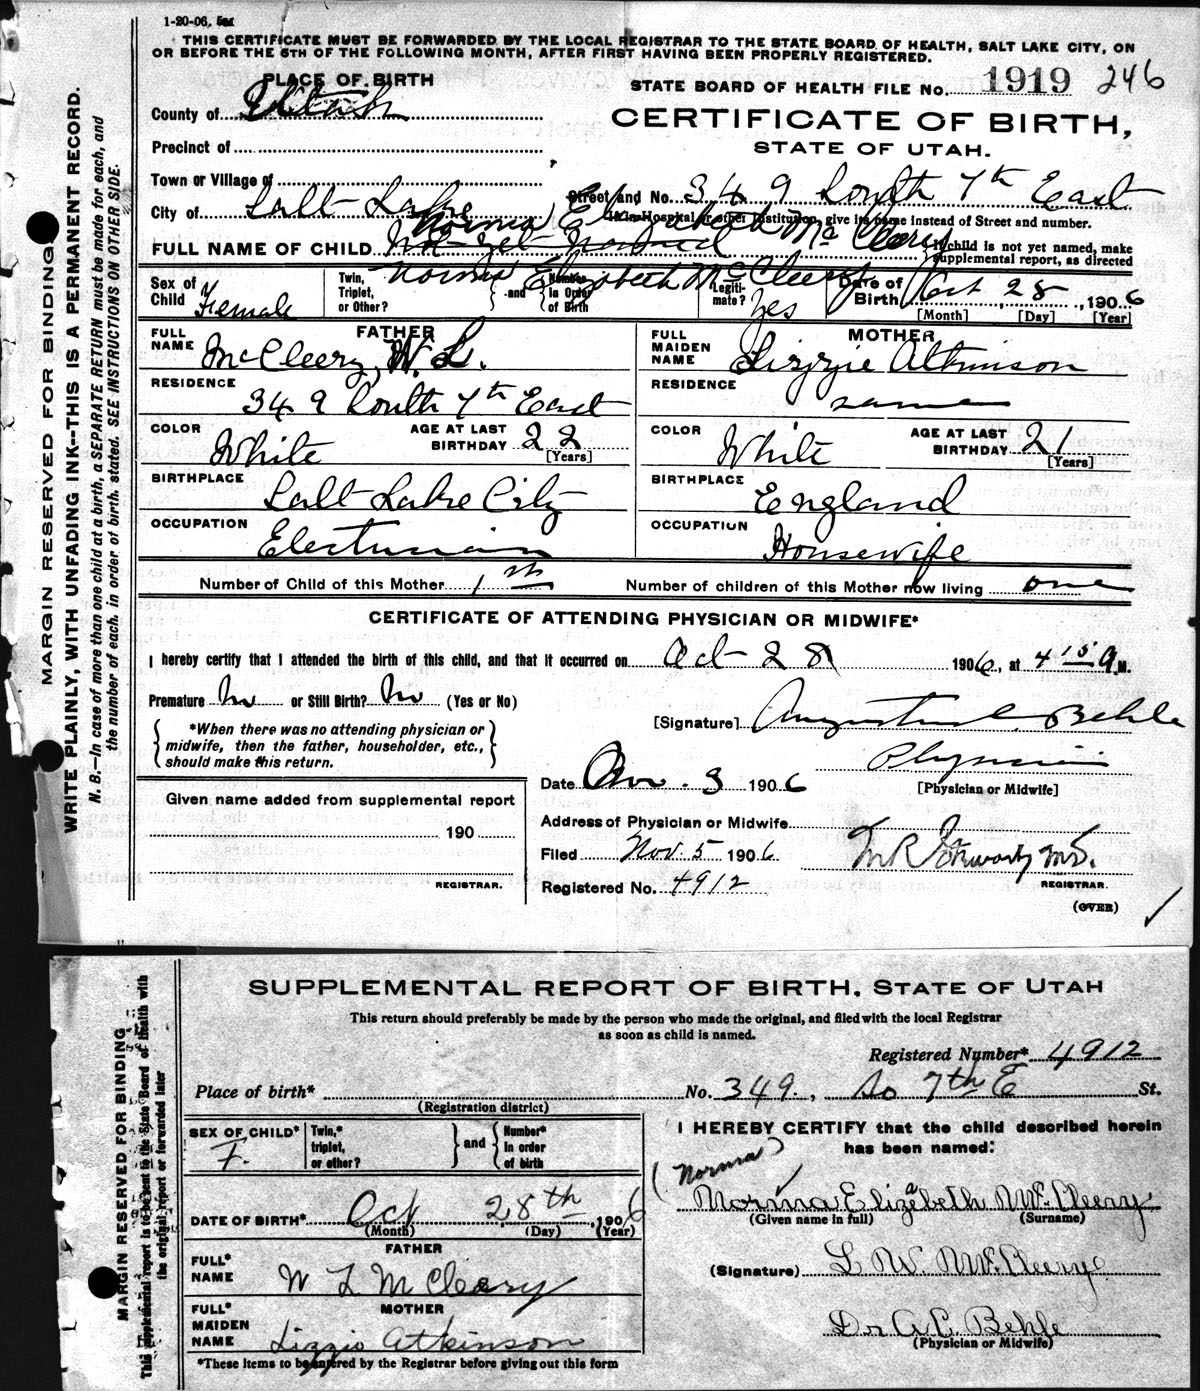 1-20-06, 5M
THIS CERTIFICATE MUST BE FORWARDED BY THE LOCAL REGISTRAR TO THE STATE BOARD OF HEALTH, SALT LAKE CITY, ON
OR BEFORE THE 5TH OF THE FOLLOWING MONTH, AFTER FIRST HAVING BEEN PROPERLY REGISTERED.
PLACE OF BIRTH
STATE BOARD OF HEALTH FILE No. 1919 246
County of
CERTIFICATE OF BIRTH,
Precinct of
STATE OF UTAH.
Town or Village of
Street and No. 349 South 7th East
City of Salt Lake
If in Hospital or other Institution, give its name instead of Street and number.
Norma Elizabeth McCleery
FULL NAME OF CHILD Not yet named
If child is not yet named, make
supplemental report, as directed
Norma Elizabeth McCleery
Sex of Child Female
Twin, Triplet, or Other?
and
Number in Order of Birth
Legitimate? Yes
Date of Birth Oct 28, 1906
[Month] [Day] [Year]
FATHER
FULL NAME McCleery, W. L.
RESIDENCE 349 South 7th East
COLOR White
AGE AT LAST BIRTHDAY 22
[Years]
BIRTHPLACE Salt Lake City
OCCUPATION Electrician
MOTHER
FULL MAIDEN NAME Lizzie Atkinson
RESIDENCE same
COLOR White
AGE AT LAST BIRTHDAY 21
[Years]
BIRTHPLACE England
OCCUPATION Housewife
Number of Child of this Mother 1st
Number of children of this Mother now living one
CERTIFICATE OF ATTENDING PHYSICIAN OR MIDWIFE*
I hereby certify that I attended the birth of this child, and that it occurred on Oct 28 1906, at 4 15 A.M.
Premature No or Still Birth? No (Yes or No)
*When there was no attending physician or
midwife, then the father, householder, etc.,
should make this return.
[Signature] Augustus C. Behle
Physician
[Physician or Midwife]
Date Nov. 3 1906
Given name added from supplemental report
190
REGISTRAR.
Address of Physician or Midwife
Filed Nov. 5 1906
REGISTRAR.
Registered No. 4912
(OVER)
MARGIN RESERVED FOR BINDING
WRITE PLAINLY, WITH UNFADING INK--THIS IS A PERMANENT RECORD.
N. B.—In case of more than one child at a birth, a SEPARATE RETURN must be made for each, and
the number of each, in order of birth, stated. SEE INSTRUCTIONS ON OTHER SIDE.
SUPPLEMENTAL REPORT OF BIRTH, STATE OF UTAH
This return should preferably be made by the person who made the original, and filed with the local Registrar
as soon as child is named.
Registered Number* 4912
Place of birth* No. 349. So 7th E St.
(Registration district)
SEX OF CHILD* F.
Twin,* triplet, or other?
and
Number* in order of birth
DATE OF BIRTH* Oct 28th, 1906
(Month) (Day) (Year)
FATHER
FULL* NAME W L McCleery
MOTHER
FULL* MAIDEN NAME Lizzie Atkinson
*These items to be entered by the Registrar before giving out this form
I HEREBY CERTIFY that the child described herein
has been named:
(Norma)
Norma Elizabeth McCleery
(Given name in full) (Surname)
(Signature) L W McCleery
Dr A C Behle
(Physician or Midwife)
MARGIN RESERVED FOR BINDING
This supplemental report is to be sent to the State Board of Health with
the original report or forwarded later